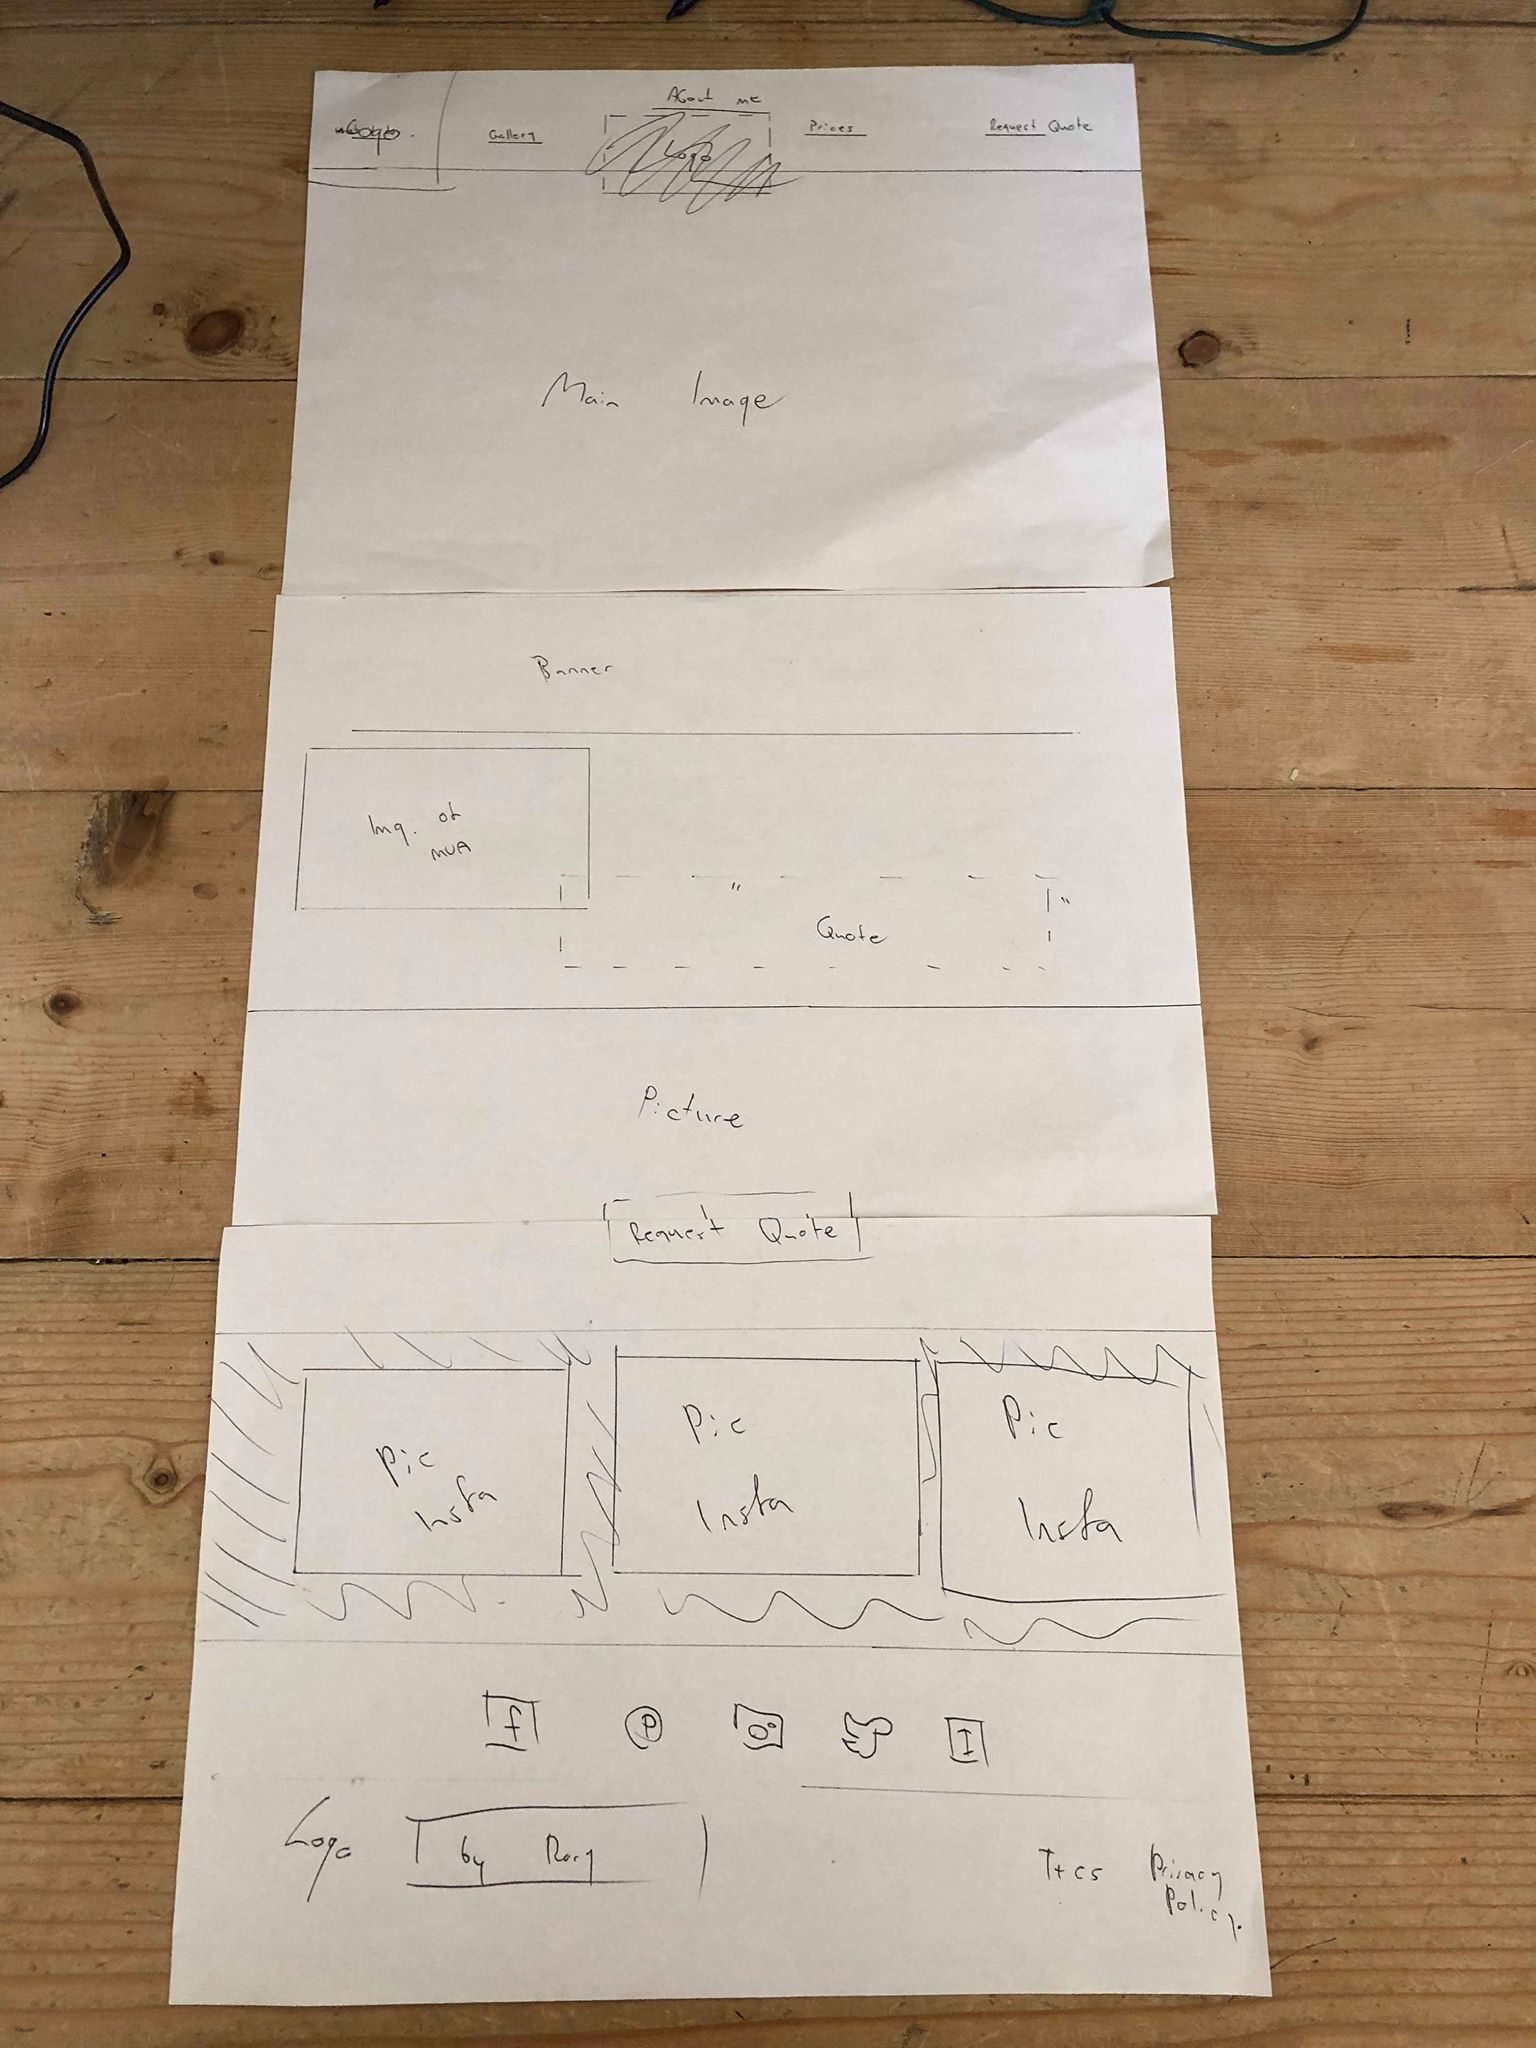 Logo.
Gallery
About me
Logo
Prices
Request Quote
Main Image
Banner
Img. of
MUA
"
"
Quote
Picture
Request Quote
Pic
Insta
Pic
Insta
Pic
Insta
f
P
I
Logo
by Rory
T+Cs
Privacy
Policy.